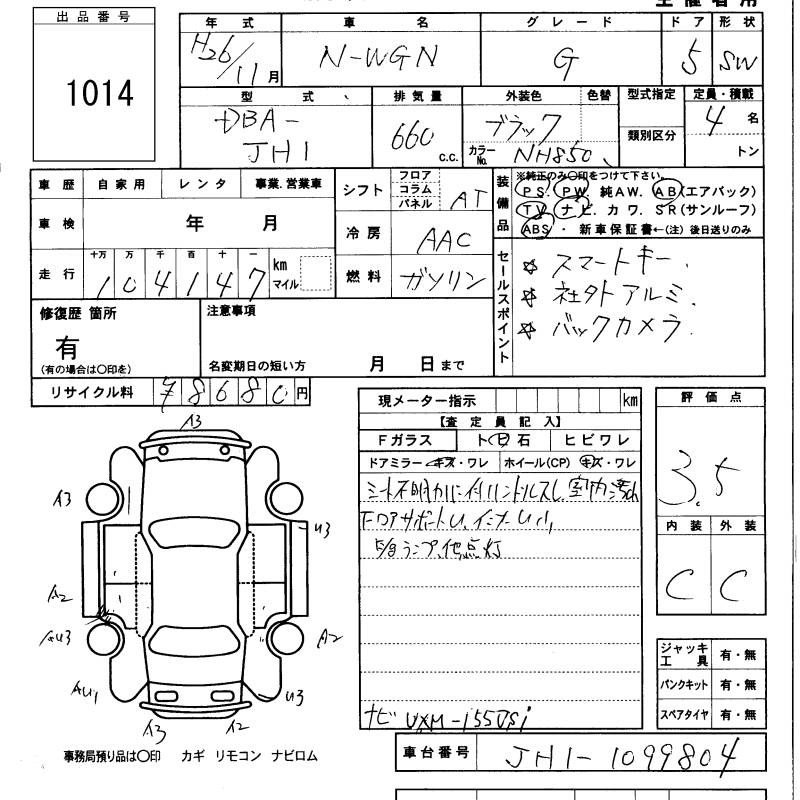 出品番号
1014
年式 車名 グレード ドア 形状
H26/11月 N-WGN G 5 SW
型式 排気量 外装色 色替 型式指定 定員・積載
DBA-JH1 660 c.c. ブラック カラーNo. NH850 類別区分 4名 トン
車歴 自家用 レンタ 事業.営業車
車検 年 月
走行 十万 万 千 百 十 一 km マイル
104147
シフト フロア コラム パネル AT
冷房 AAC
燃料 ガソリン
装備品
※純正のみ〇印をつけて下さい。
PS. PW. 純AW. AB(エアバック)
TV. ナビ. カワ. SR(サンルーフ)
ABS ・ 新車保証書←(注) 後日送りのみ
セールスポイント
☆ スマートキー.
☆ 社外アルミ.
☆ バックカメラ.
修復歴 箇所
有
(有の場合は〇印を)
注意事項
名変期日の短い方 月 日まで
リサイクル料 ¥8680円
現メーター指示 km
【査定員記入】
Fガラス トビ石 ヒビワレ
ドアミラー キズ・ワレ ホイール(CP) キズ・ワレ
室内汚れ
ナビ VXM-155VSi
評価点
3.5
内装 外装
C C
ジャッキ工具 有・無
パンクキット 有・無
スペアタイヤ 有・無
A3
A3
U3
A2
AU3
A2
AU1
U3
A3
A2
事務局預り品は〇印 カギ リモコン ナビロム
車台番号 JH1-1099804